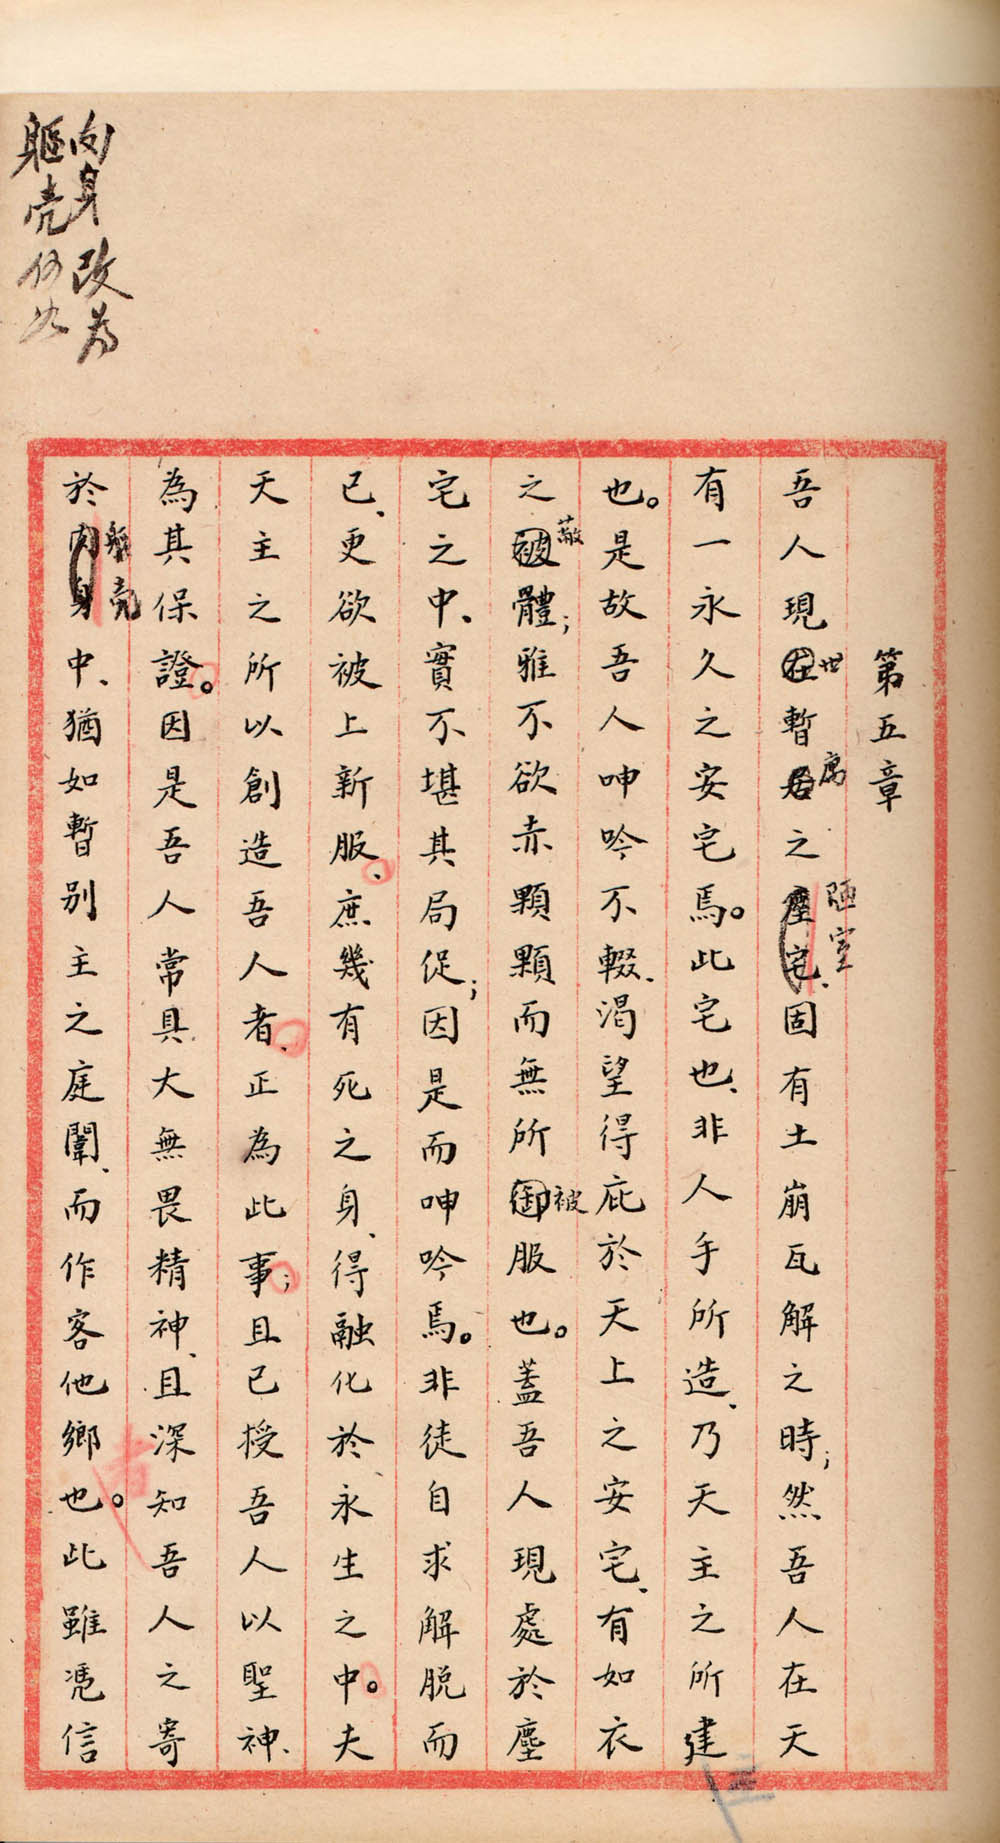 第五章
世
寓
陋室
吾人現在暫居之塵宅、固有土崩瓦解之時；然吾人在天
有一永久之安宅焉。此宅也、非人手所造、乃天主之所建
也。是故吾人呻吟不輟、渴望得庇於天上之安宅、有如衣
蔽
被
之被體；雅不欲赤顆顆而無所御服也。蓋吾人現處於塵
宅之中、實不堪其局促；因是而呻吟焉。非徒自求解脱而
已、更欲被上新服、庶幾有死之身、得融化於永生之中。夫
天主之所以創造吾人者、正為此事；且已授吾人以聖神、
為其保證。因是吾人常具大無畏精神、且深知吾人之寄
軀壳
於肉身中、猶如暫别主之庭闈、而作客他鄉也。此雖凴信
肉身改為
軀壳何如